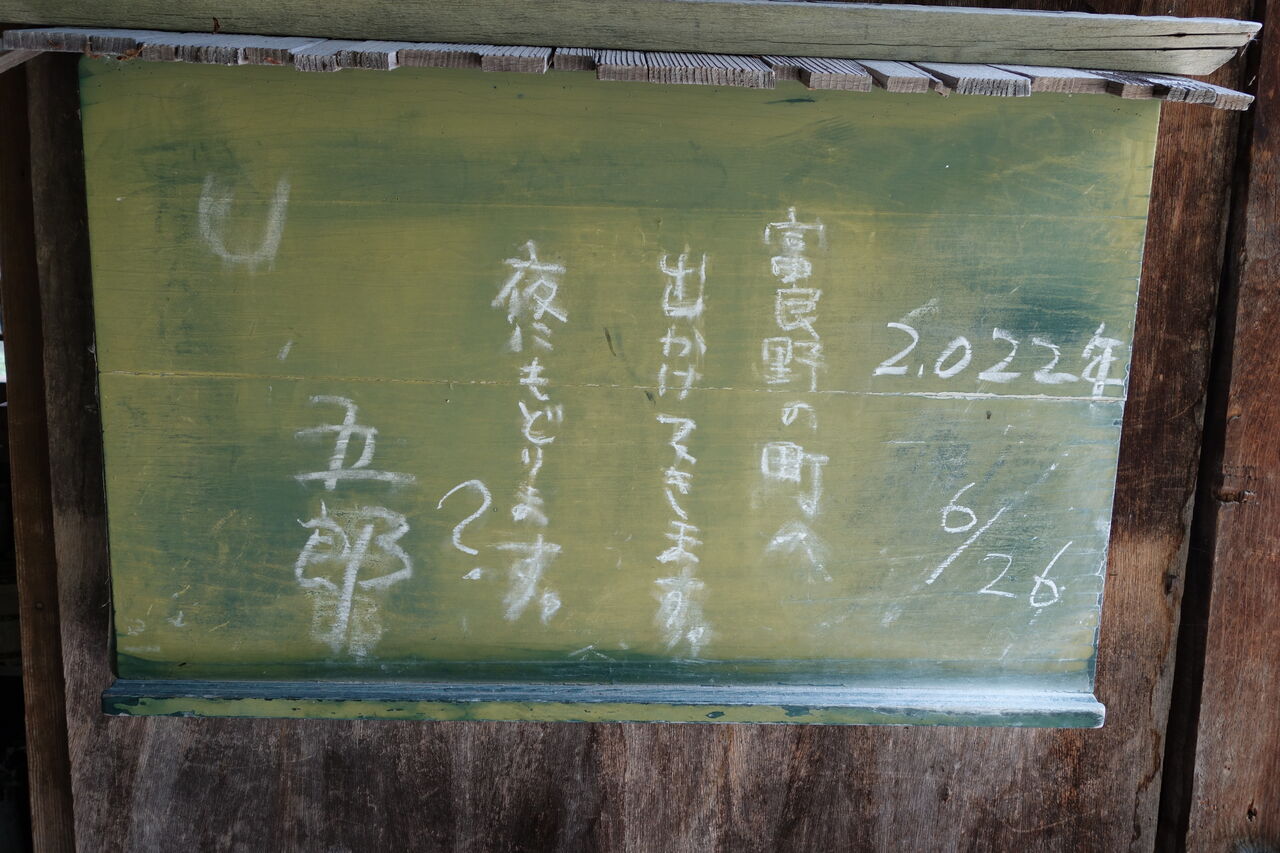 2.022年
6/26
富良野の町へ
出かけてきます。
夜にもどります。
?
五郎
U